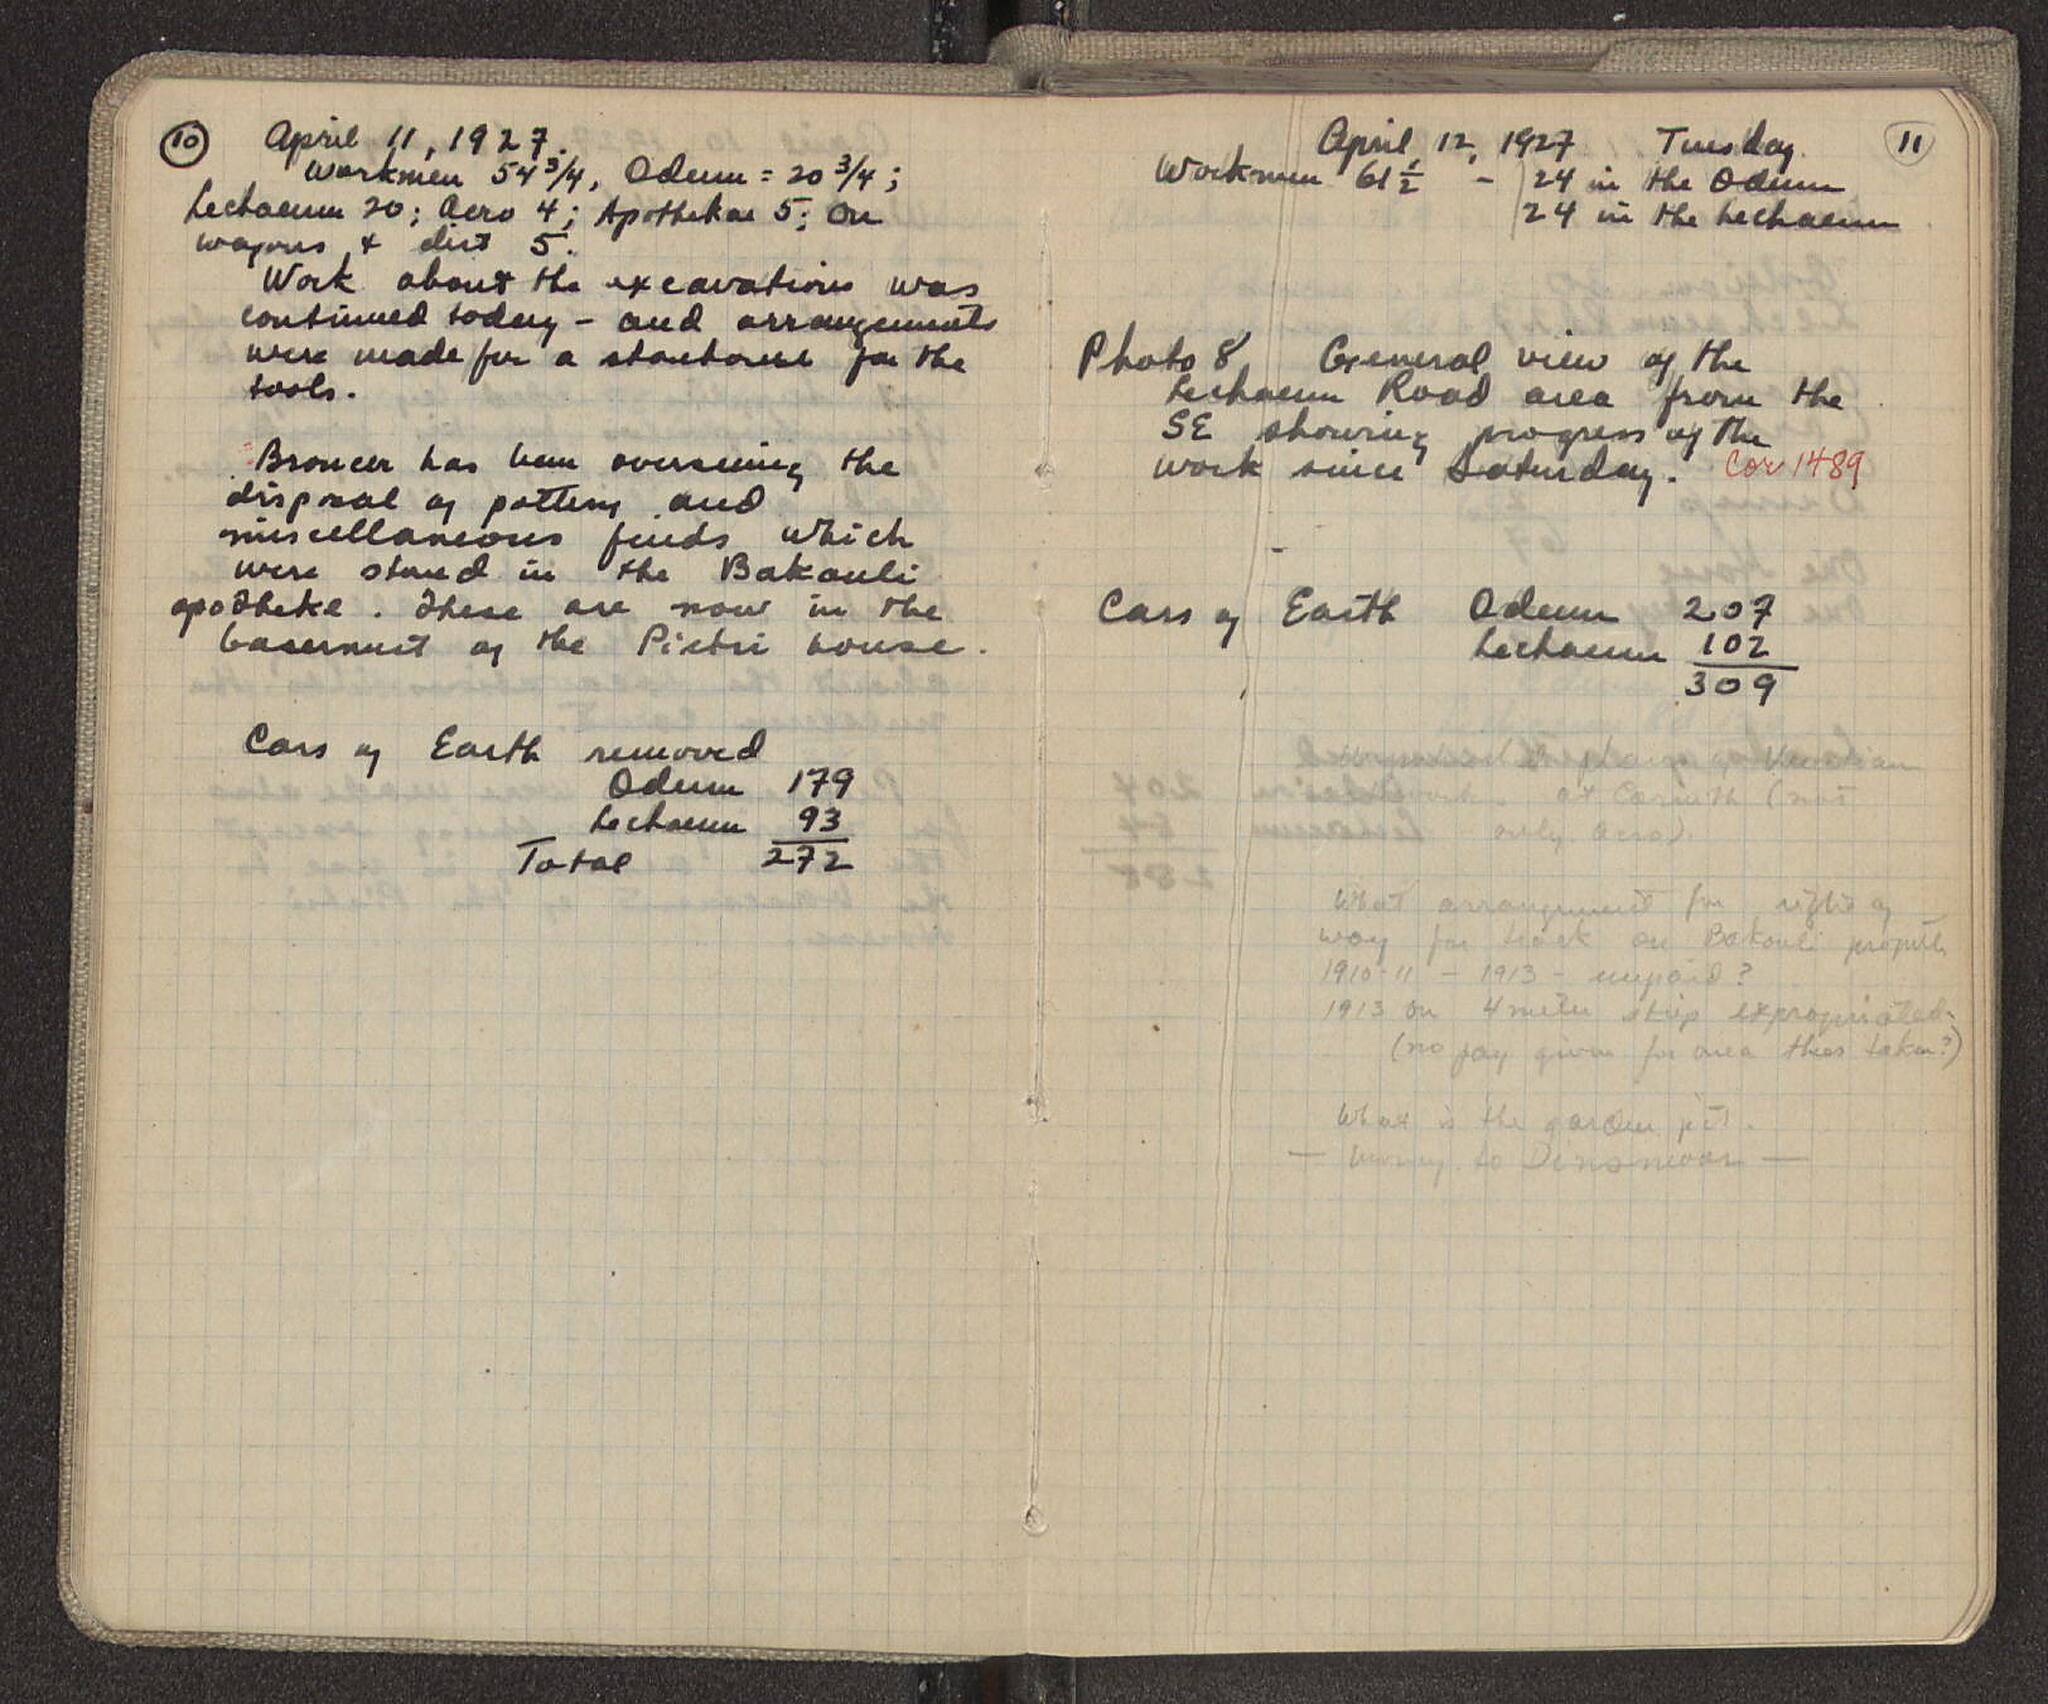 10
April 11, 1927.
Workmen 54 3/4, Odeum = 20 3/4;
Lechaeum 20; Acro 4; Apothekae 5; on
wagons & dirt 5.
Work about the excavations was
continued today - and arrangements
were made for a storehouse for the
tools.
Broneer has been overseeing the
disposal of pottery and
miscellaneous finds which
were stored in the Bakouli
apotheke. These are now in the
basement of the Pietri house.
Cars of Earth removed
Odeum 179
Lechaeum 93
Total 272
11
April 12, 1927 Tuesday
Workmen 61 1/2 - 24 in the Odeum
24 in the Lechaeum
Photo 8 General view of the
Lechaeum Road area from the
SE showing progress of the
work since Saturday. Cor 1489
Cars of Earth Odeum 207
Lechaeum 102
309
of Venetian
work at Corinth (not
only acro).
What arrangement for right of
way for track on Bakouli property
1910-11 - 1913 - unpaid?
1913 on 4 meter strip expropriated.
(no pay given for area thus taken?)
What is the garden
- Money to